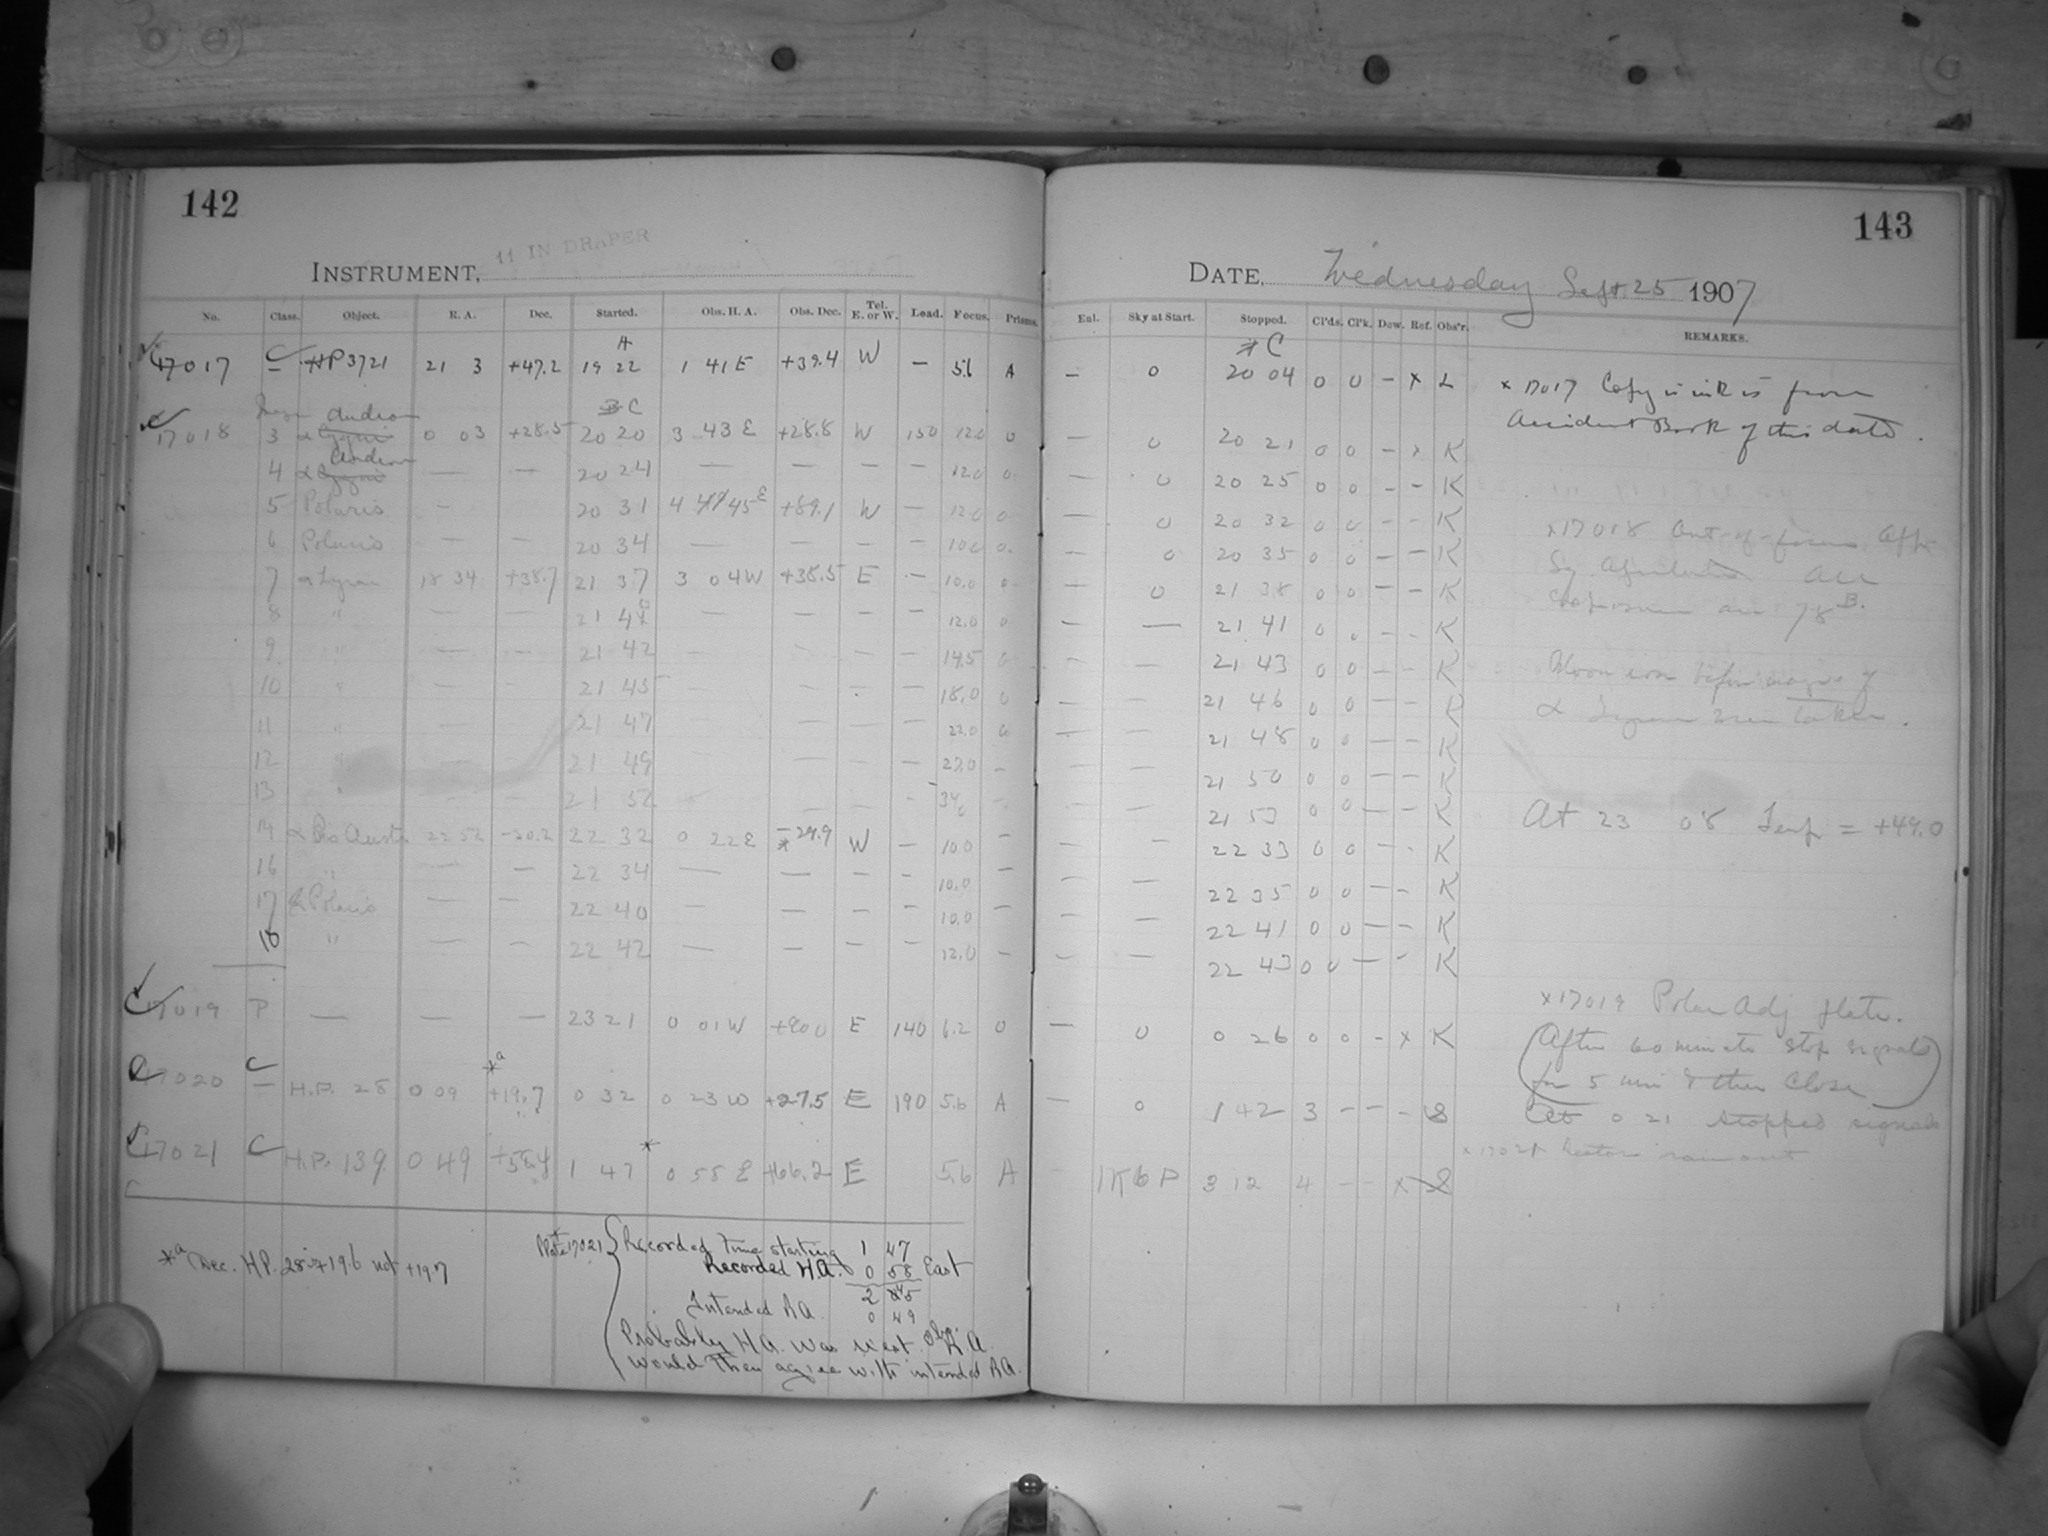 142
11 IN DRAPER
INSTRUMENT,
No. Class. Object. R. A. Dec. Started. Obs. H. A. Obs. Dec. Tel. E. or W. Load. Focus. Prisms.
A
17017 C HP 3721 21 3 +47.2 19 22 1 41 E +39.4 W — 5.6 A
Androm C
17018 3 α 0 03 +28.5 20 20 3 43 E +28.8 W 150 12.0 0
Androm
4 α — — 20 24 — — — — 12.0 0
5 Polaris — 20 31 4 45 E +89.1 W — 12.0 0
6 Polaris — — 20 34 — — — — 10.0 0
7 α Lyrae 18 34 +38.7 21 37 3 04 W +38.5 E — 10.0 0
8 " — — 21 40 — — — — 12.0 0
9 " — — 21 42 — — — — 14.5 0
10 " — — 21 45 — — — — 18.0 0
11 " — — 21 47 — — — — 22.0 0
12 " — — 21 49 — — — — 27.0 —
13 " — — 21 52 — — — — 34.0 —
14 α Pis Austr 22 52 -30.2 22 32 0 22 E -29.9 W — 10.0 —
16 " — — 22 34 — — — — 10.0 —
17 Polaris — — 22 40 — — — — 10.0 —
18 " — — 22 42 — — — — 12.0 —
17019 P — — — 23 21 0 01 W +90.0 E 140 6.2 0
*a
17020 C H.P. 28 0 09 +19.7 0 32 0 23 W +27.5 E 190 5.6 A
17021 C H.P. 139 0 49 +58.4 1 47 * 0 58 E +66.2 E 5.6 A
*a Dec. HP. 28 is +19.6 not +19.7
Plate 17021 { Recorded time starting 1 47
Recorded H.A. 0 58 East
2 45
Intended RA 0 49
Probably H.A. was west. Obs. R.A.
would then agree with intended RA.
143
DATE, Wednesday Sept. 25 1907
Enl. Sky at Start. Stopped. Cl'ds. Cl'k. Dew. Ref. Obs'r. REMARKS.
* C
— 0 20 04 0 0 — x L
— 0 20 21 0 0 — x K
— 0 20 25 0 0 — — K
— 0 20 32 0 0 — — K
— 0 20 35 0 0 — — K
— 0 21 38 0 0 — — K
— — 21 41 0 0 — — K
— — 21 43 0 0 — — K
— — 21 46 0 0 — — K
— — 21 48 0 0 — — K
— — 21 50 0 0 — — K
— — 21 53 0 0 — — K
— — 22 33 0 0 — — K
— — 22 35 0 0 — — K
— — 22 41 0 0 — — K
— — 22 43 0 0 — — K
— 0 0 26 0 0 — x K
— 0 1 42 3 — — — S
— 1K6P 3 12 4 — — x S
x 17017 Copy in ink is from
Accident Book of this date.
x17018 Out-of-focus
Sq
are 78 B.
Moon before images of
α Lyrae were taken.
At 23 08 Temp = +49.0
x17019 Polar Adj plate.
(After 60 minutes stop signals
for 5 min & then close)
At 0 21 stopped signals
x 17021